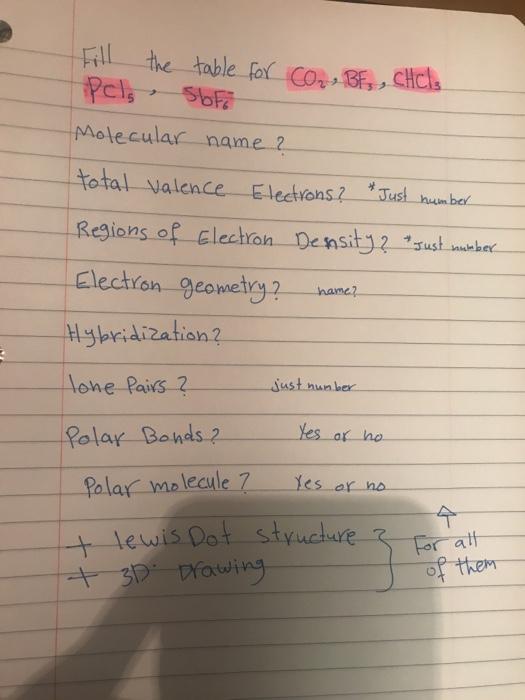 Fill the table for CO₂, BF₃, CHCl₃
PCl₅, SbF₆⁻
Molecular name?
total valence Electrons? *Just number
Regions of Electron Density? *Just number
Electron geometry? name?
Hybridization?
lone Pairs? just number
Polar Bonds? Yes or no
Polar molecule? Yes or no
+ lewis Dot structure } For all
+ 3D Drawing of them